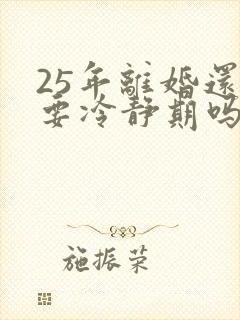 25年離婚還
要冷靜期吗
施振荣